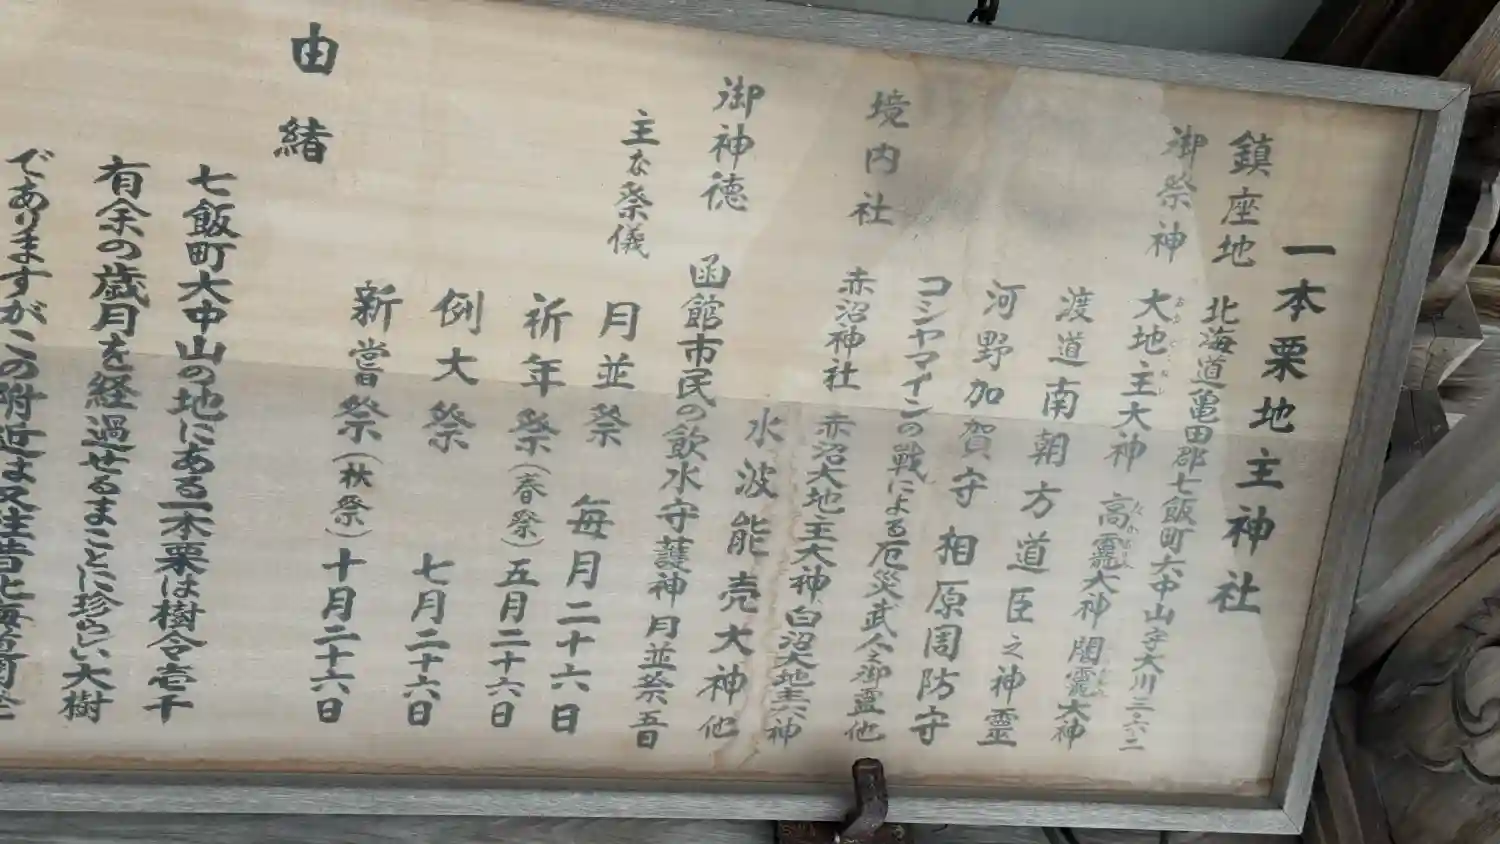 一本栗地主神社
鎮座地 北海道亀田郡七飯町大中山字大川三・六二
御祭神 大地主大神 高龗大神 闇龗大神
渡道南朝方道臣之神霊
河野加賀守 相原周防守
コシヤマインの戦による厄災武人之御霊他
境内社 赤沼神社 赤沼大地主大神 白沼大地主大神
水波能売大神他
御神徳 函館市民の飲水守護神 月並祭
主な祭儀 月並祭 毎月二十六日
祈年祭(春祭)五月二十六日
例大祭 七月二十六日
新嘗祭(秋祭)十月二十六日
由緒
七飯町大中山の地にある一本栗は樹令壱千
有余の歳月を経過せるまことに珍らしい大樹
でありますがこの附近は又往昔北海道